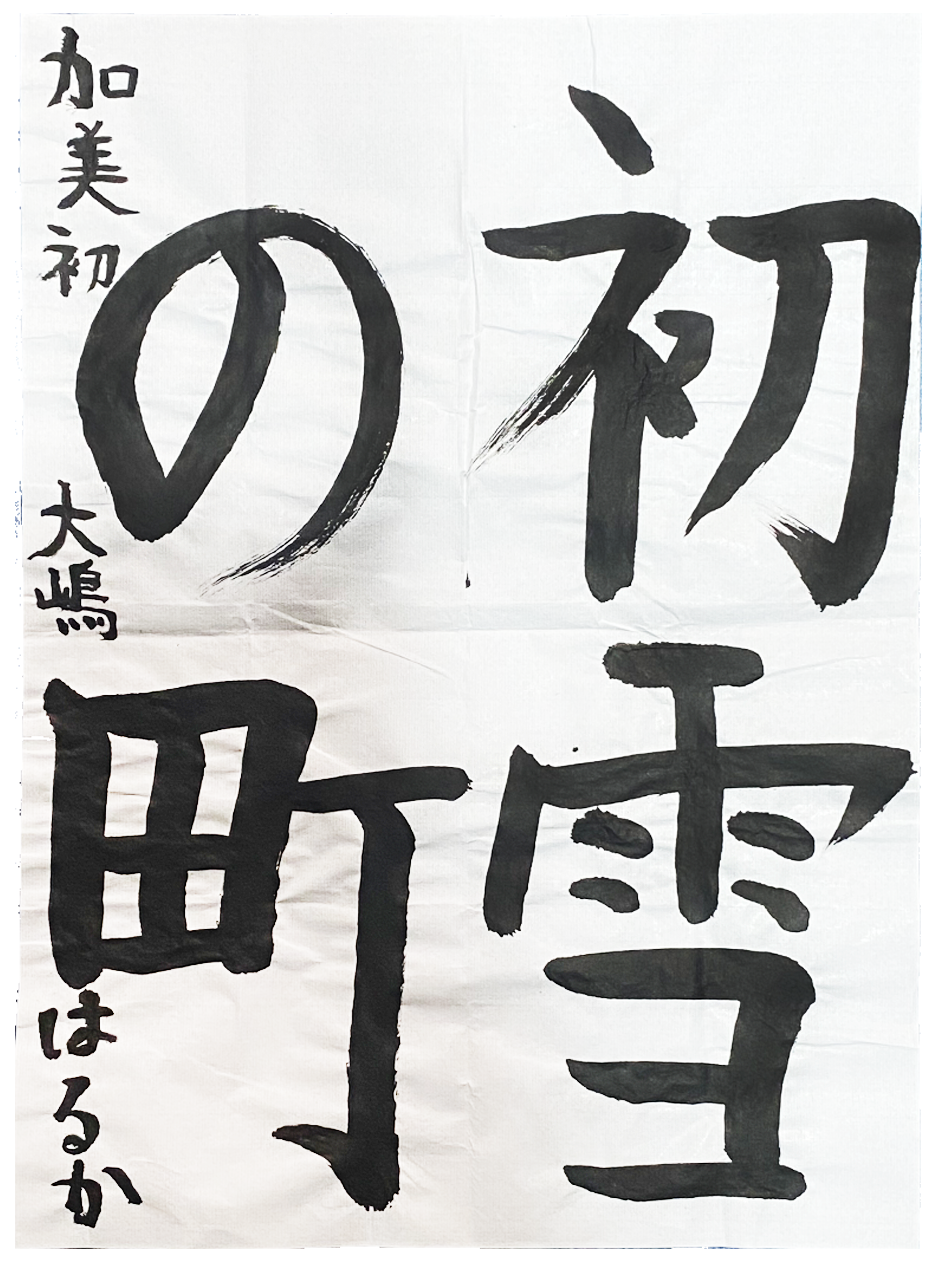 初雪
の町
加美初 大嶋はるか